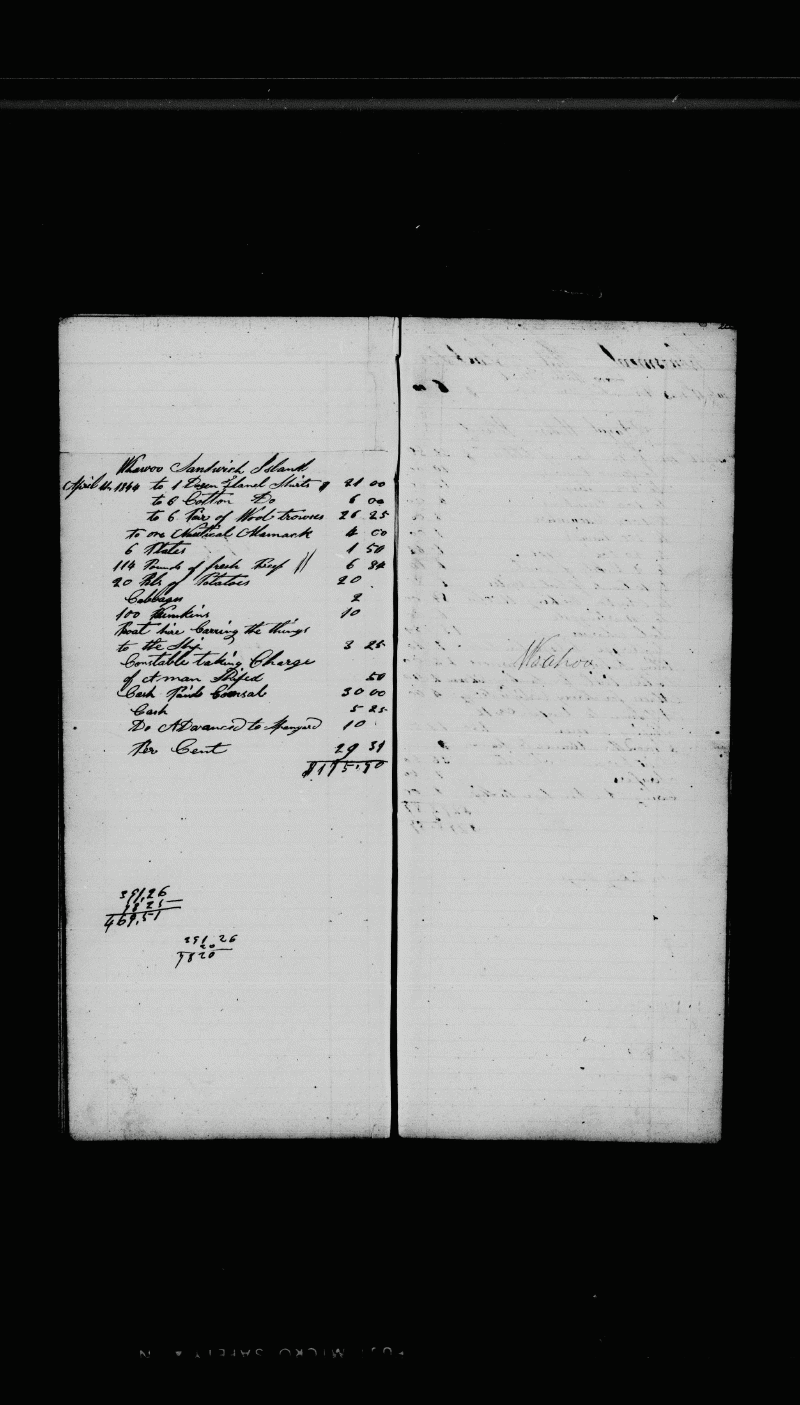 Whawoo Sandwich Island
April 4th 1844 to 1 Dozen Flanel Shirts $ 21 00
to 6 Cotton Do 6 00
to 6 Pair of Wool trowses 26 25
to one Nautical Almanack 4 00
6 Plates 1 50
114 Pounds of fresh Beef 6 84
20 Bbls of Potatoes 20
Cabbages 2
100 Pumkins 10
Boat hire Carring the things
to the Ship 3 25
Constable taking Charge
of A man Shiped 50
Cash Paid Consal 30 00
Cash 5 25
Do ADvanced to Spanyard 10
Per Cent 29 31
$175.90
391,26
78 25
469,51
391,26
20
7820
Woahoo